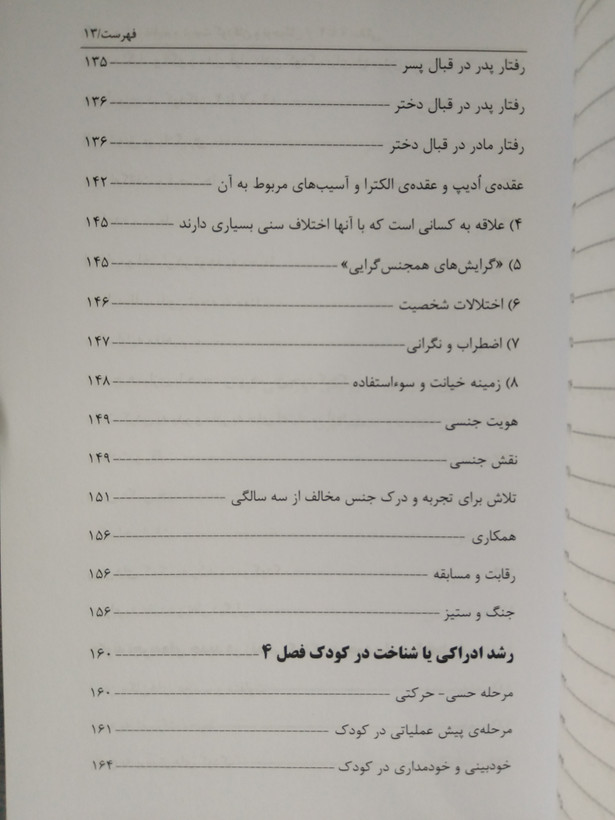 فهرست/۱۳
رفتار پدر در قبال پسر ۱۳۵
رفتار پدر در قبال دختر ۱۳۶
رفتار مادر در قبال دختر ۱۳۶
عقده‌ی اُدیپ و عقده‌ی الکترا و آسیب‌های مربوط به آن ۱۴۲
۴) علاقه به کسانی است که با آنها اختلاف سنی بسیاری دارند ۱۴۵
۵) «گرایش‌های همجنس‌گرایی» ۱۴۵
۶) اختلالات شخصیت ۱۴۶
۷) اضطراب و نگرانی ۱۴۷
۸) زمینه خیانت و سوءاستفاده ۱۴۸
هویت جنسی ۱۴۹
نقش جنسی ۱۴۹
تلاش برای تجربه و درک جنس مخالف از سه سالگی ۱۵۱
همکاری ۱۵۶
رقابت و مسابقه ۱۵۶
جنگ و ستیز ۱۵۶
رشد ادراکی یا شناخت در کودک فصل ۴ ۱۶۰
مرحله حسی- حرکتی ۱۶۰
مرحله‌ی پیش عملیاتی در کودک ۱۶۱
خودبینی و خودمداری در کودک ۱۶۴